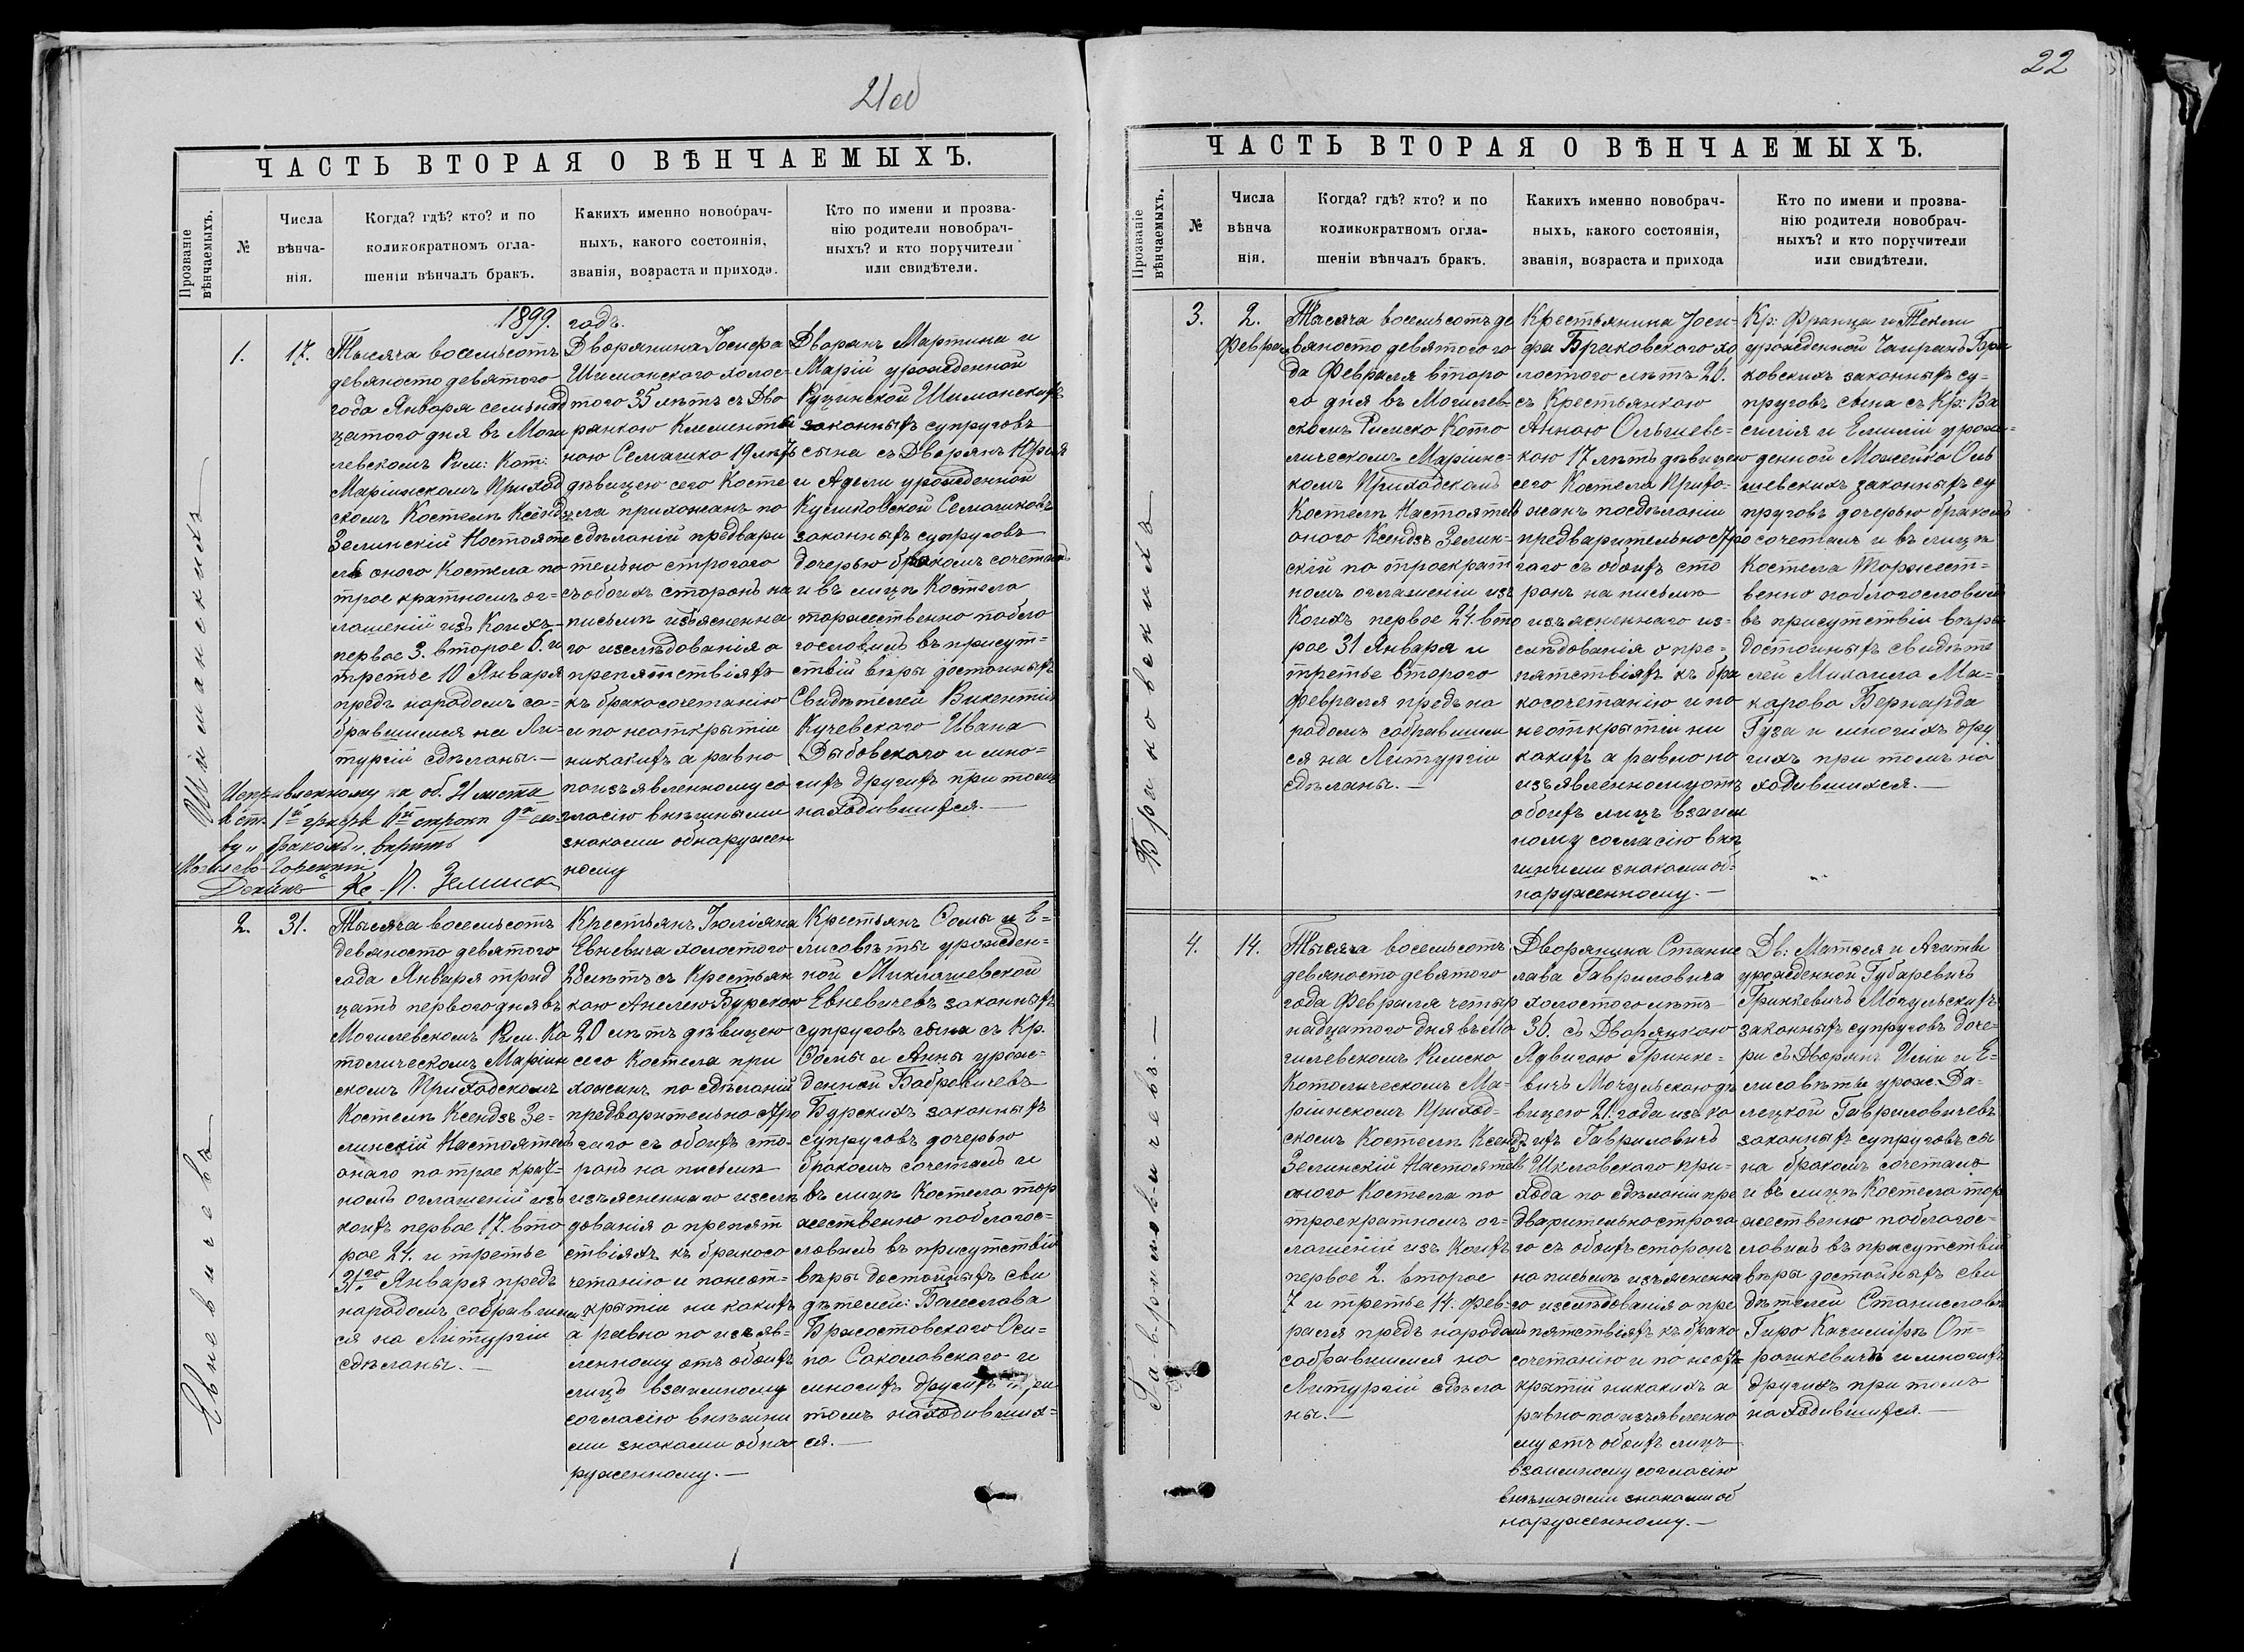 21об
ЧАСТЬ ВТОРАЯ О ВѢНЧАЕМЫХЪ.
Прозваніе вѣнчаемыхъ.
№
Числа
вѣнча-
нія.
Когда? гдѣ? кто? и по
коликократномъ огла-
шеніи вѣнчалъ бракъ.
Какихъ именно новобрач-
ныхъ, какого состоянія,
званія, возраста и прихода.
Кто по имени и прозва-
нію родители новобрач-
ныхъ? и кто поручители
или свидѣтели.
1899. годъ.
Шиманскихъ
1.
17.
Тысяча восемьсотъ
девяносто девятого
года Января семьнад
цатого дня въ Моги
левскомъ Рим: Кат:
Маріинскомъ Приход
скомъ Костелѣ Ксендзъ
Зелинскій Настояте
ль оного Костела по
трое кратномъ ог=
лашеній изъ Коихъ
первое 3. второе 6. и
третье 10 Января
предъ народомъ со-
бравшимся на Ли-
тургій сдѣланы.—
Дворянина Іосифа
Шиманского холос-
того 35 лѣтъ съ Дво
рянкою Клементи
ною Семашко 19 лѣтъ
дѣвицею сего Косте
ла прихожанъ по
сдѣланій предвари
тельно строгого
съ обоихъ сторонъ на
письмѣ изъясненна
го изслѣдованія о
препятствіяхъ
къ бракосочетанію
и по неоткрытіи
никакихъ а равно
по изъявленному со
гласію внѣшними
знаками обнаружен
ному
Дворянъ Мартина и
Марій урожденной
Рущинской Шиманскихъ
законныхъ супруговъ
сына съ Дворянъ
и Адели урожденной
Куликовской Семашковъ
законныхъ супруговъ
дочерью бракомъ сочеталъ
и въ лицѣ Костела
торжественно побло
гословилъ въ присут=
ствій вѣры достойныхъ
Свидѣтелей Викентія
Кучевского Ивана
Дыбовского и мно=
гихъ другихъ при томъ
находившихся.—
Исправленному на об. 21 листа
въ ст. 1й графѣ 6й строкѣ 9й сло
ву „бракомъ„ вѣрить
Могилево-Горецкій
Деканъ Кс. П. Зелинск
Евневичевъ
2.
31.
Тысяча восемьсотъ
девяносто девятого
года Января трид
цать первого дня въ
Могилевскомъ Рим. Ка
толическомъ Маріин
скомъ Приходскомъ
Костелѣ Ксендзъ Зе=
линскій Настоятель
онаго по трое крат=
номъ оглашеній изъ
коихъ первое 17. вто
рое 24. и третье
31го Января предъ
народомъ собравшим
ся на Литургіи
сдѣланы.—
Крестьянъ Юліяна
Евневича холостого
28 лѣтъ съ Крестьян
кою Анелею Бурскою
20 лѣтъ дѣвицею
сего Костела при
хожанъ по сдѣланій
предварительно стро
гаго съ обоихъ сто-
ронъ на письмѣ
изъясненнаго изслѣ
дованія о препят
ствіяхъ къ бракосо
четанію и понеот=
крытіи ни какихъ
а равно по изъяв=
ленному отъ обоихъ
лицъ взаимному
согласію внѣшни
ми знаками обна
руженному.—
Крестьянъ Ѳомы и Е=
лисовѣты урожден=
ной Миклашевской
Евневичевъ законныхъ
супруговъ сына съ Кр.
Ѳомы и Анны урож=
денной Бабровичевъ
Бурскихъ законныхъ
супруговъ дочерью
бракомъ сочеталъ и
въ лицѣ Костела тор
жественно поблагос=
ловилъ въ присутствій
вѣры достойныхъ сви
дѣтелей: Болеслава
Бржостовскаго Оси=
па Соколовскаго и
многихъ другихъ при
томъ находивших=
ся.—
22
ЧАСТЬ ВТОРАЯ О ВѢНЧАЕМЫХЪ.
Прозваніе вѣнчаемыхъ.
№
Числа
вѣнча
нія.
Когда? гдѣ? кто? и по
коликократномъ огла-
шеніи вѣнчалъ бракъ.
Какихъ именно новобрач-
ныхъ, какого состоянія,
званія, возраста и прихода
Кто по имени и прозва-
нію родители новобрач-
ныхъ? и кто поручители
или свидѣтели.
Браковскихъ
3.
2.
Февраля
Тысяча восемьсотъ де
вяносто девятого го
да Февраля второ
го дня въ Могилев=
скомъ Римско Като
лическомъ Маріинс=
комъ Приходскомъ
Костелѣ Настоятель
оного Ксендзъ Зелин=
скій по троекрат
номъ оглашеніи изъ
Коихъ первое 24. вто
рое 31 Января и
третье второго
Февраля предъ на
родомъ собравшим
ся на Литургіи
сдѣланы.—
Крестьянина Іоси=
фа Браковского хо
лостого лѣтъ 20.
съ Крестьянкою
Анною Ольшевс=
кою 17 лѣтъ дѣвицею
сего Костела Прихо=
жанъ посдѣланіи
предварительно стро
гаго съ обоихъ сто
ронъ на письмѣ
изъясненнаго из=
слѣдованія о пре=
пятствіяхъ къ бра
косочетанію и по
неоткрытіи ни
какихъ а равно по
изъявленному отъ
обоихъ лицъ взаим
ному согласію внѣ
шними знаками об=
наруженному.—
Кр: Франца и Текли
урожденной Чапранъ Бра
ковскихъ законныхъ су=
пруговъ сына съ Кр: Ва
силія и Емиліи урож=
денной Можейко Оль
шевскихъ законныхъ су
пруговъ дочерью бракомъ
сочеталъ и въ лицѣ
Костела Торжест=
венно поблагословилъ
въ присутствіи вѣры
достойныхъ свидѣте
лей Михаила Ма=
карова Бернарда
Гуза и многихъ дру
гихъ при томъ на
ходившихся.—
Гавриловичевъ.—
4.
14.
Тысяча восемьсотъ
девяносто девятого
года Февраля четыр
надцатого дня въ Мо
гилевскомъ Римско
Католическомъ Ма=
ріинскомъ Приход=
скомъ Костелѣ Ксендзъ
Зелинскій Настоятель
оного Костела по
троекратномъ ог=
лашеній изъ Коихъ
первое 2. второе
7 и третье 14. Фев=
раля предъ народомъ
собравшимся на
Литургій сдѣла
ны.—
Дворянина Станис
лава Гавриловича
холостого лѣтъ
30. съ Дворянкою
Ядвигою Гринке=
вичъ Мочульскою дѣ
вицею 21. года изъ ко
ихъ Гавриловичъ
Шкловскаго при=
хода по сдѣланіи пре
дварительно строга
го съ обоихъ сторонъ
на письмѣ изъясненна
го изслѣдованія о пре
пятствіяхъ къ брако
сочетанію и по неот=
крытій никакихъ а
равно по изъявленно
му отъ обоихъ лицъ
взаимному согласію
внѣшними знаками об
наруженному.—
Дв: Матѳея и Агаты
урожденной Губаревичъ
Гринкевичъ Мочульскихъ
законныхъ супруговъ доче=
ри съ Дворянъ Иліи и Е=
лисовѣты урож. Да=
лецкой Гавриловичевъ
законныхъ супруговъ сы
на бракомъ сочеталъ
и въ лицѣ Костела тор
жественно поблагос=
ловилъ въ присутствій
вѣры достойныхъ сви
дѣтелей Станислава
Гиро Казиміра От=
рошкевича и многихъ
другихъ при томъ
находившихся.—